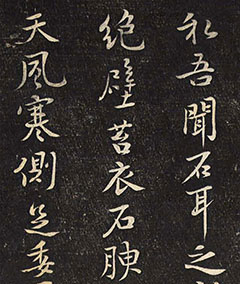 私吾聞石耳之
絶壁苔衣石腴
天風寒側足委